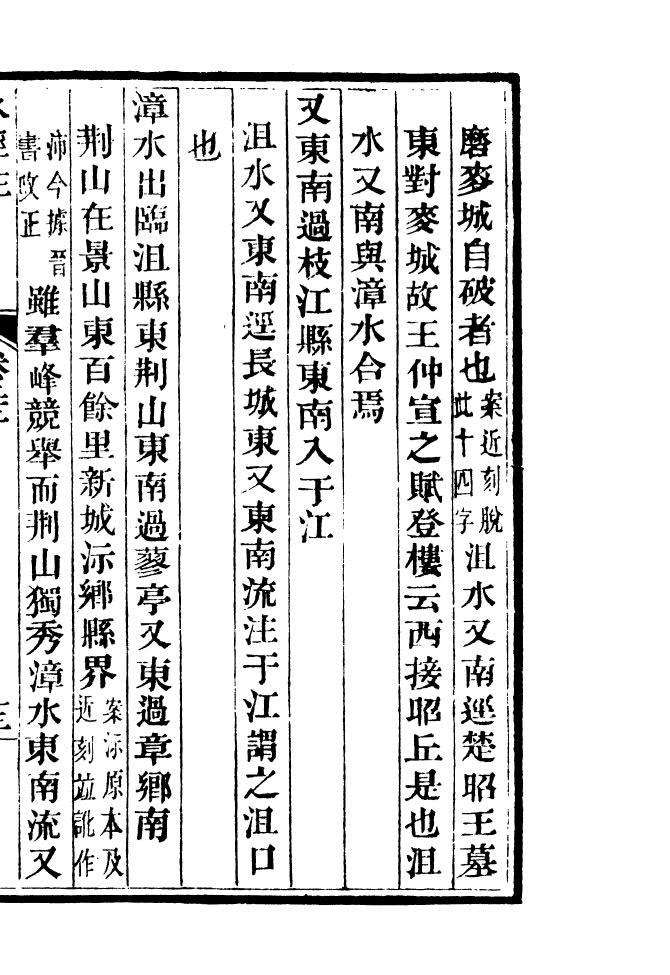 磨麥城自破者也案近刻脫此十四字沮水又南逕楚昭王墓
東對麥城故王仲宣之賦登樓云西接昭丘是也沮
水又南與漳水合焉
又東南過枝江縣東南入于江
沮水又東南逕長城東又東南流注于江謂之沮口
也
漳水出臨沮縣東荆山東南過蓼亭又東過章鄉南
荆山在景山東百餘里新城沶鄉縣界案沶原本及近刻並訛作
沛今據晉書改正雖羣峰競舉而荆山獨秀漳水東南流又